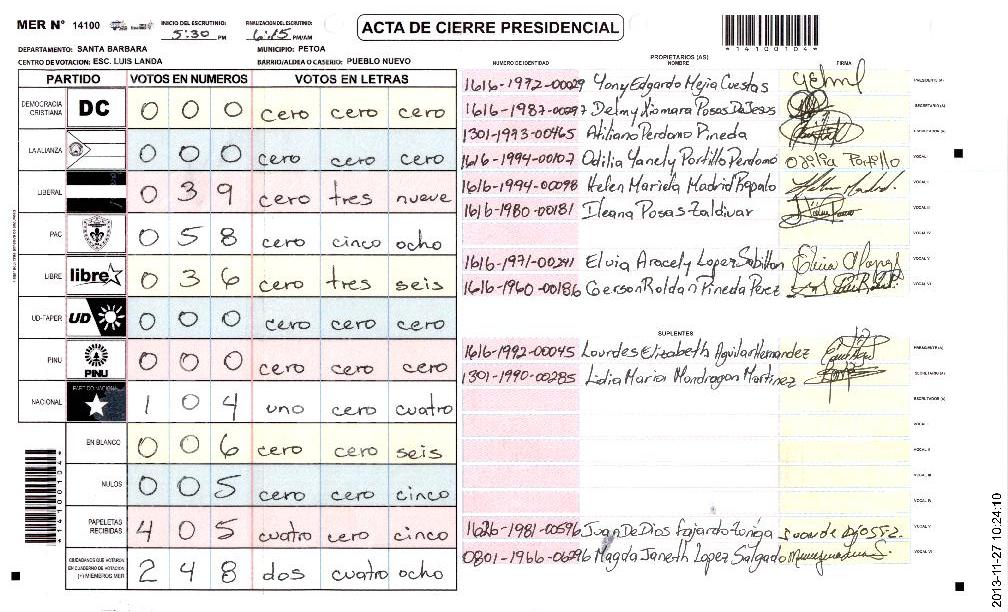 MER N° 14100 INICIO DEL ESCRUTINIO: 5:30 PM FINALIZACION DEL ESCRUTINIO: 6:15 PM/AM ACTA DE CIERRE PRESIDENCIAL *14100104*
DEPARTAMENTO: SANTA BARBARA MUNICIPIO: PETOA
CENTRO DE VOTACION: ESC. LUIS LANDA BARRIO/ALDEA O CASERIO: PUEBLO NUEVO
PARTIDO VOTOS EN NUMEROS VOTOS EN LETRAS
DEMOCRACIA CRISTIANA DC 0 0 0 cero cero cero
LA ALIANZA 0 0 0 cero cero cero
LIBERAL 0 3 9 cero tres nueve
PAC 0 5 8 cero cinco ocho
LIBRE libre 0 3 6 cero tres seis
UD-FAPER UD 0 0 0 cero cero cero
PINU PINU 0 0 0 cero cero cero
NACIONAL PARTIDO NACIONAL 1 0 4 uno cero cuatro
EN BLANCO 0 0 6 cero cero seis
NULOS 0 0 5 cero cero cinco
PAPELETAS RECIBIDAS 4 0 5 cuatro cero cinco
CIUDADANOS QUE VOTARON EN CUADERNO DE VOTACION (+) MIEMBROS MER 2 4 8 dos cuatro ocho
*14100104*
PROPIETARIOS (AS)
NUMERO DE IDENTIDAD NOMBRE FIRMA
1616-1972-00029 Yony Edgardo Mejia Cuestas PRESIDENTE (A)
1616-1987-00897 Delmy Xiomara Posas De Jesus SECRETARIO (A)
1301-1973-00465 Atiliano Perdomo Pineda ESCRUTADOR (A)
1616-1994-00107 Odilia Yanely Portillo Perdomo Odilia Portillo VOCAL I
1616-1994-00098 Helen Mariela Madrid VOCAL II
1616-1980-00181 Ileana Posas Zaldivar VOCAL III
VOCAL IV
1616-1971-00241 Elvia Aracely Lopez Sabillon VOCAL V
1616-1960-00186 Gerson Roldan Pineda Perez VOCAL VI
SUPLENTES
1616-1992-00045 Lourdes Elizabeth Aguilar Hernandez PRESIDENTE (A)
1301-1990-00285 Lidia Maria Mondragon Martinez SECRETARIO (A)
ESCRUTADOR (A)
VOCAL I
VOCAL II
VOCAL III
VOCAL IV
1626-1981-00596 Juan De Dios Fajardo Zuniga VOCAL V
0801-1966-06296 Magda Janeth Lopez Salgado VOCAL VI
2013-11-27 10:24:10